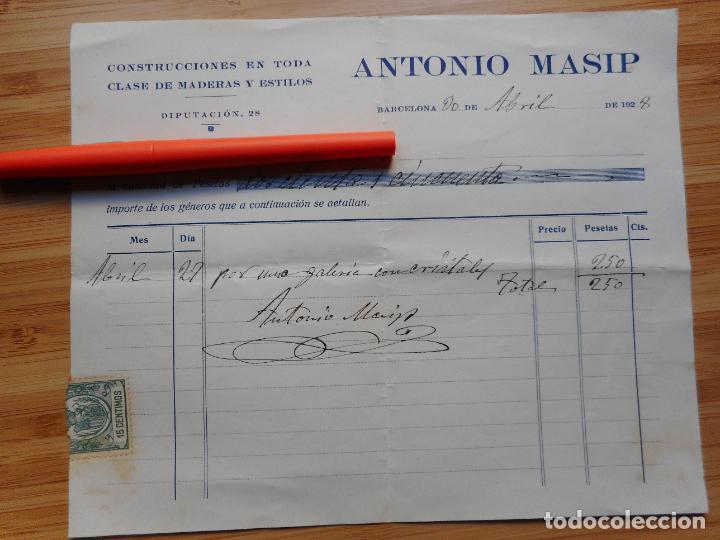 CONSTRUCCIONES EN TODA
CLASE DE MADERAS Y ESTILOS
DIPUTACIÓN, 28
ANTONIO MASIP
BARCELONA 30 DE Abril DE 1928
la cantidad de Pesetas doscientas cincuenta.
importe de los géneros que a continuación se detallan.
Mes Día Precio Pesetas Cts.
Abril 27 por una galeria con cristales 250
Total 250
Antonio Masip
15 CENTIMOS
todocoleccion.net